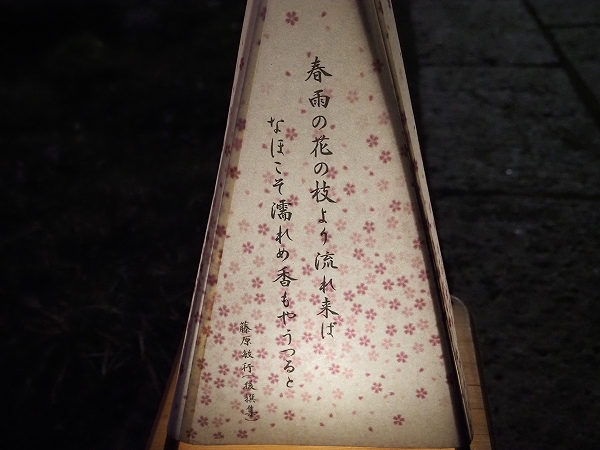 春雨の花の枝より流れ来ば
なほこそ濡れめ香もやうつると
藤原敏行（後撰集）